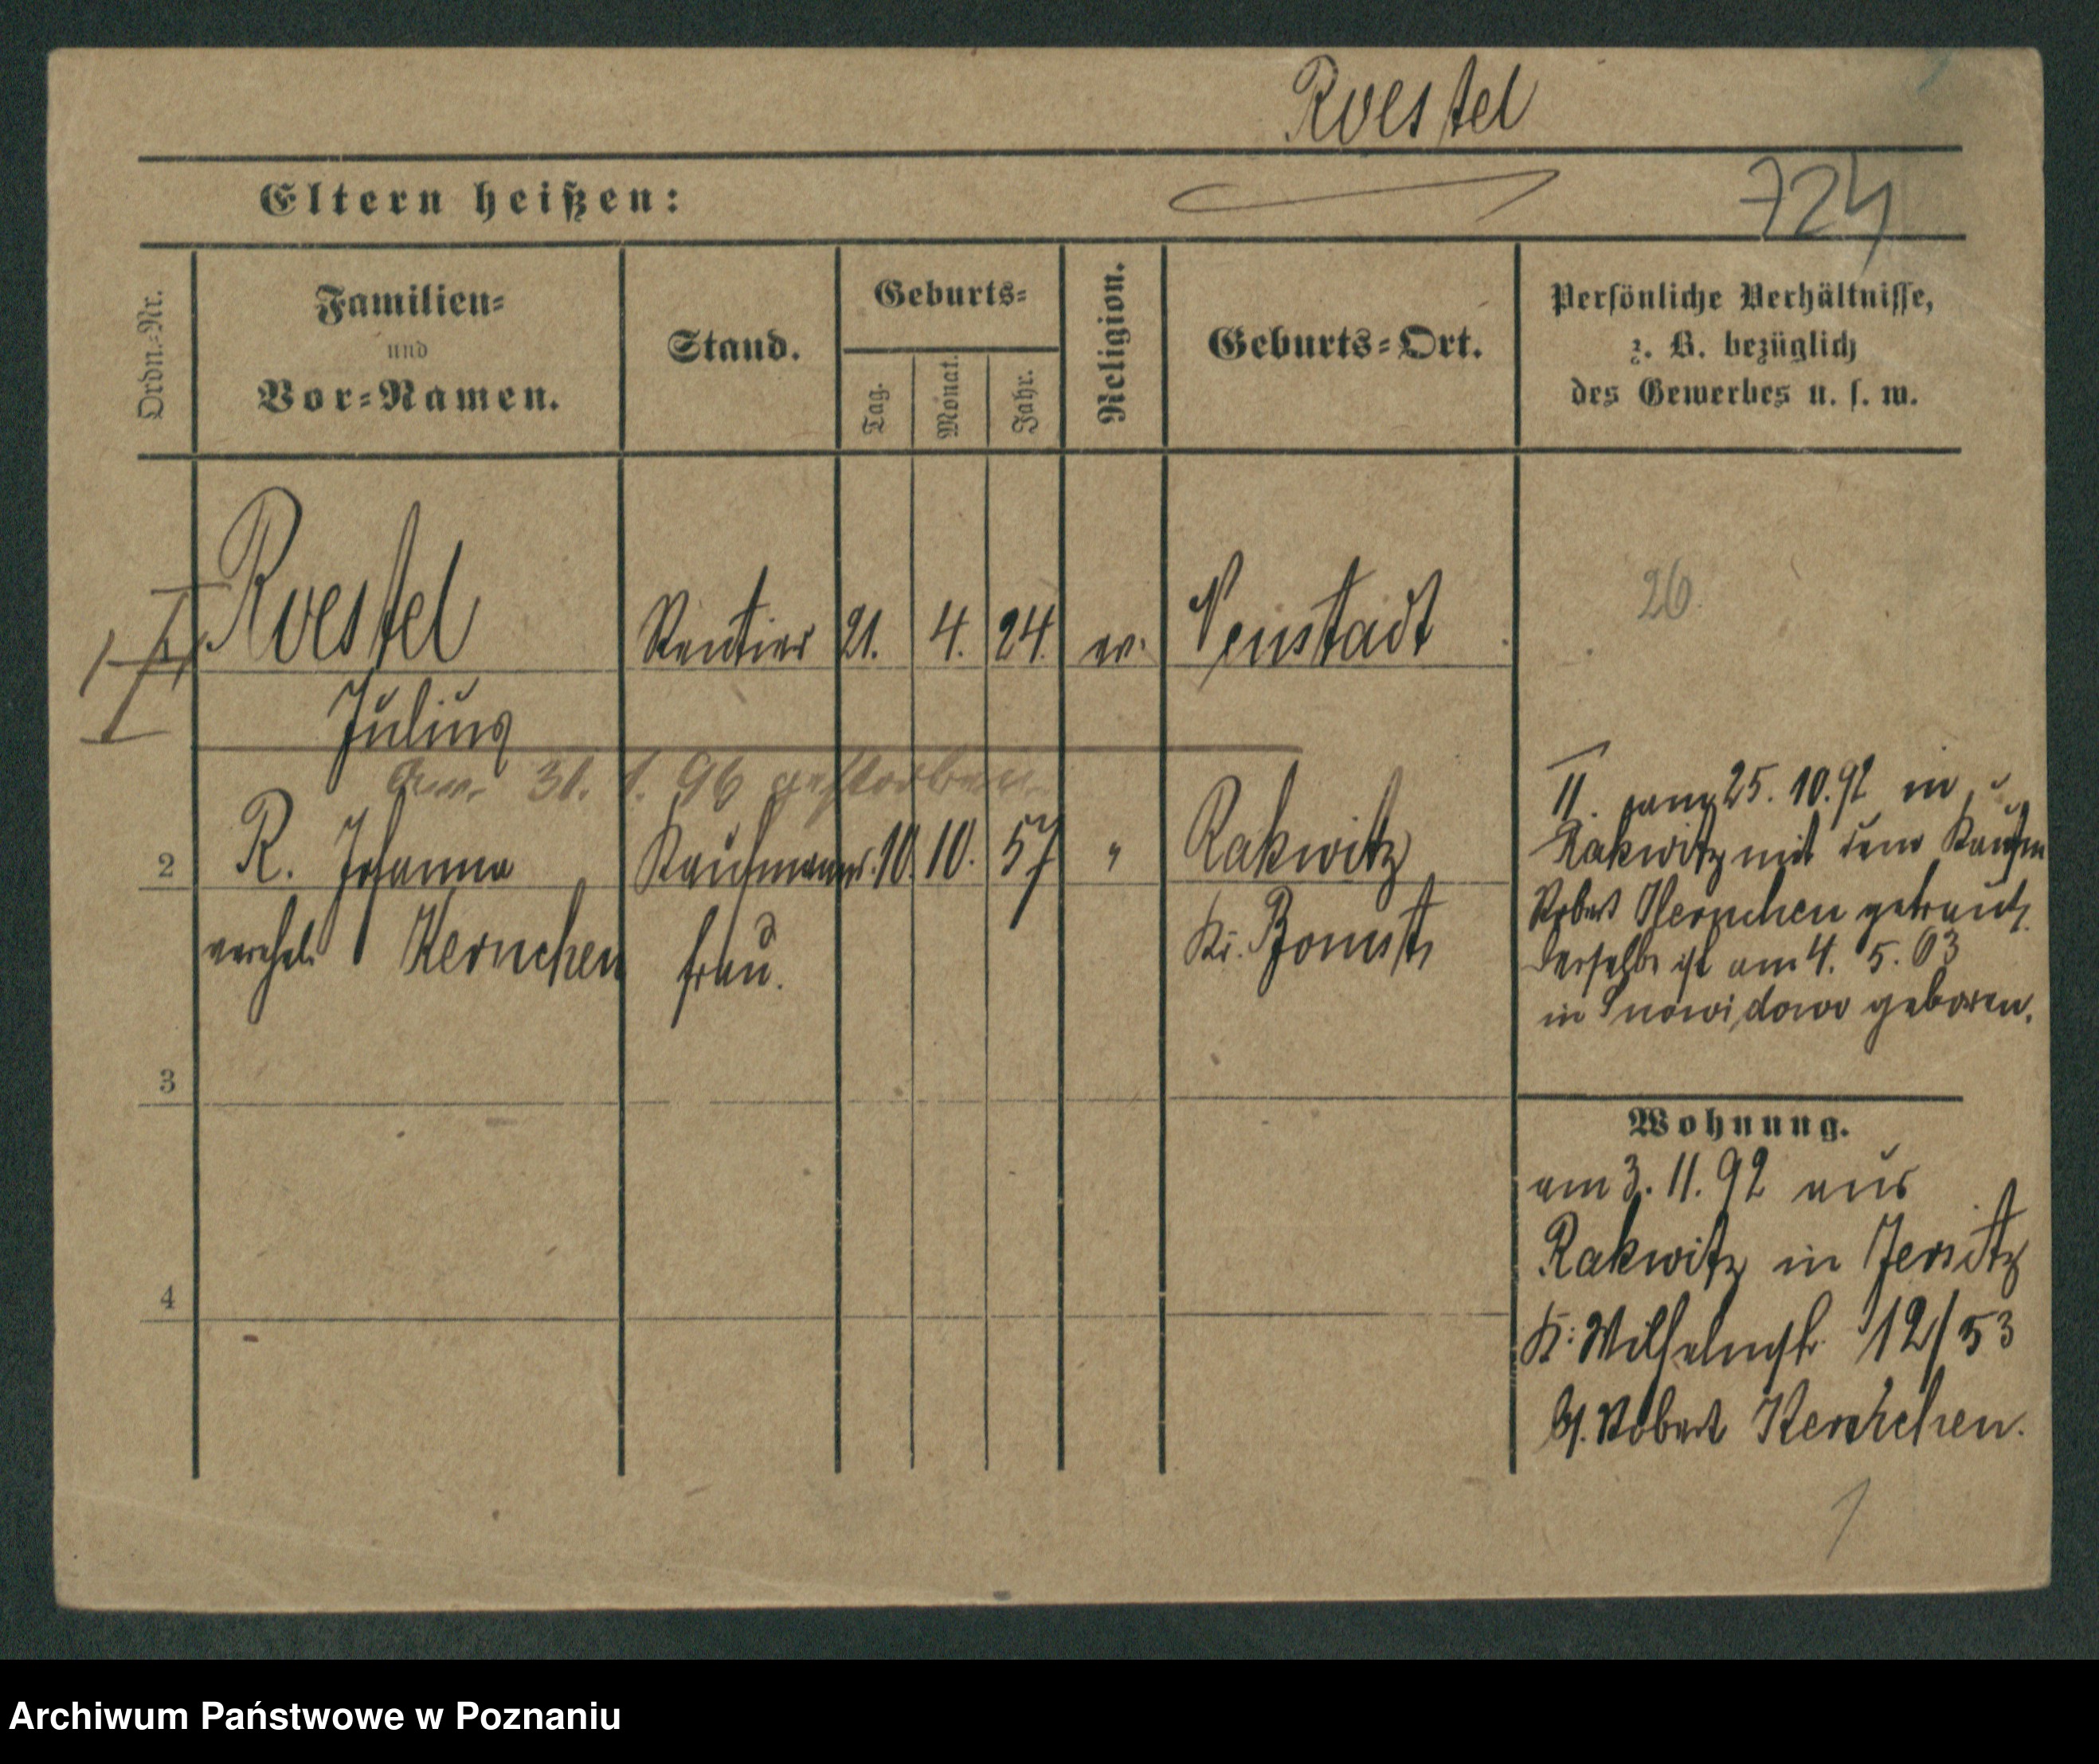 Roestel
Eltern heißen:
724
Ordn.-Nr.
Familien-
und
Vor-Namen.
Stand.
Geburts-
Tag.
Monat.
Jahr.
Religion.
Geburts-Ort.
Persönliche Verhältnisse,
z. B. bezüglich
des Gewerbes u. s. w.
Roestel
Rentier 21. 4. 24. ev. Neustadt
26
Julius
am 31. 1. 96 gestorben.
2 R. Johanna Kaufmanns. 10. 10. 57 " Rakwitz
verehel. Kernchen frau. Kr. Bomst
II. 25. 10. 92 in
Rakwitz mit dem Kaufm
Robert Kernchen getraut.
Derselbe ist am 4. 5. 63
in Snowidowo geboren.
3
Wohnung.
am 3. 11. 92 aus
Rakwitz in Jersitz
K: Wilhelmstr. 12/53
b/. Robert Kernchen.
4
Archiwum Państwowe w Poznaniu